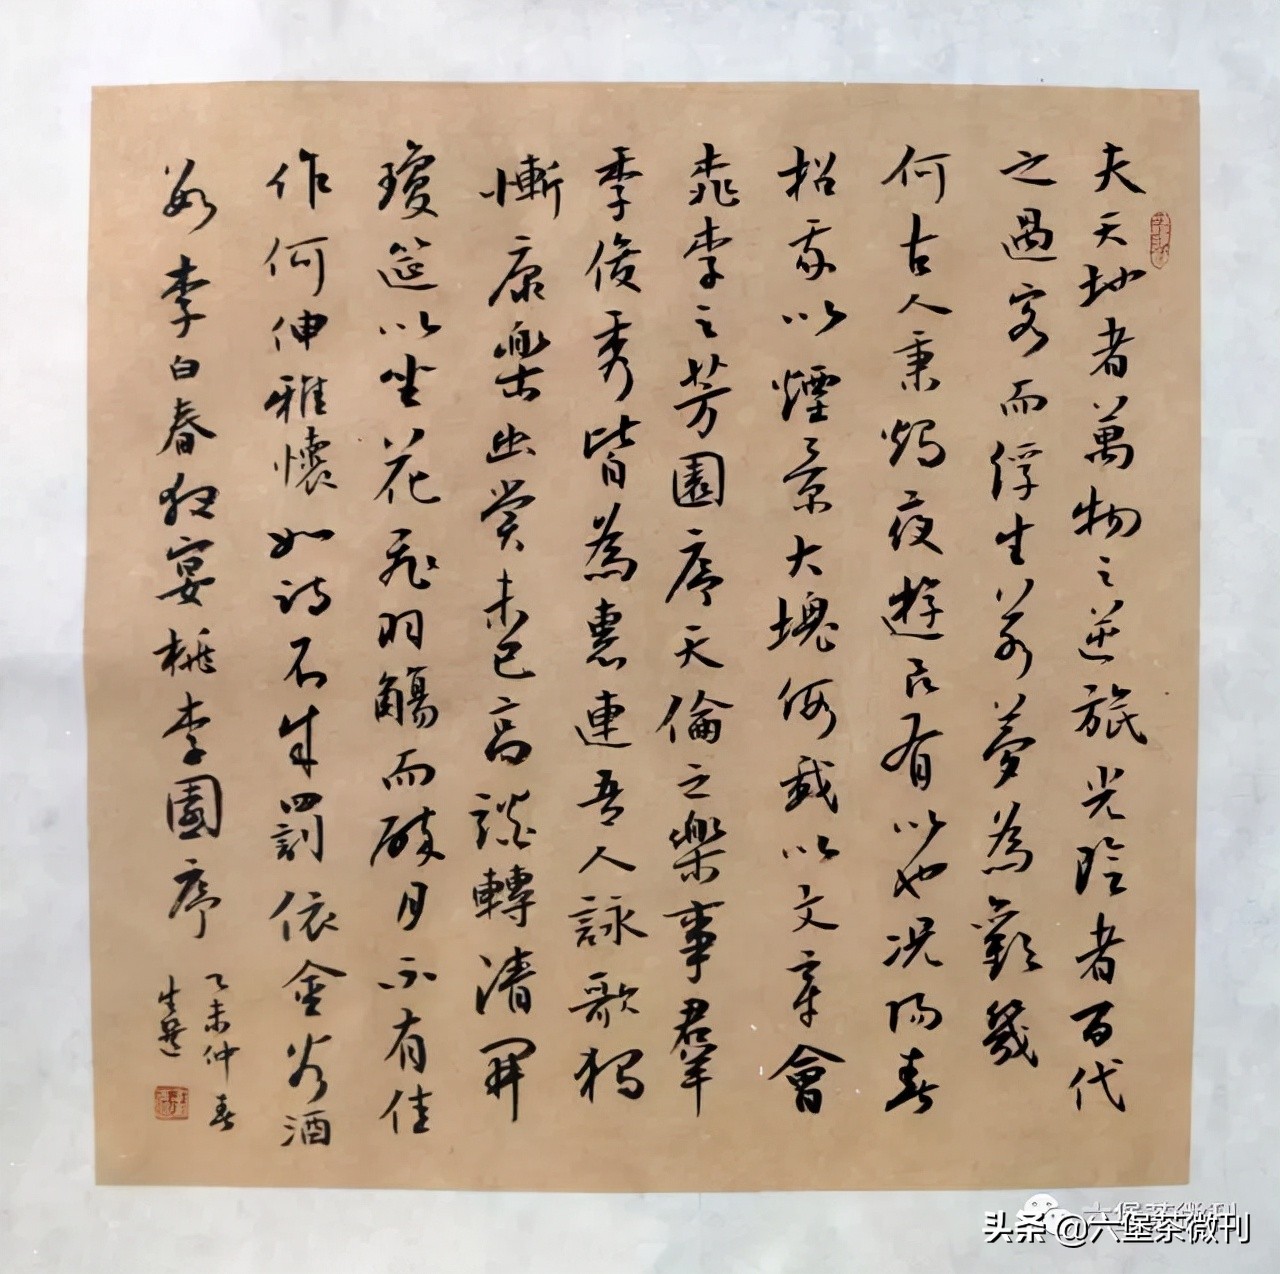 夫天地者萬物之逆旅光陰者百代
之過客而浮生若夢為歡幾
何古人秉燭夜遊良有以也況陽春
招我以煙景大塊假我以文章會
桃李之芳園序天倫之樂事羣
季俊秀皆為惠連吾人詠歌獨
慚康樂幽賞未已高談轉清開
瓊筵以坐花飛羽觴而醉月不有佳
作何伸雅懷如詩不成罰依金谷酒
數李白春夜宴桃李園序
乙未仲春
六堡茶微刊
头条@六堡茶微刊